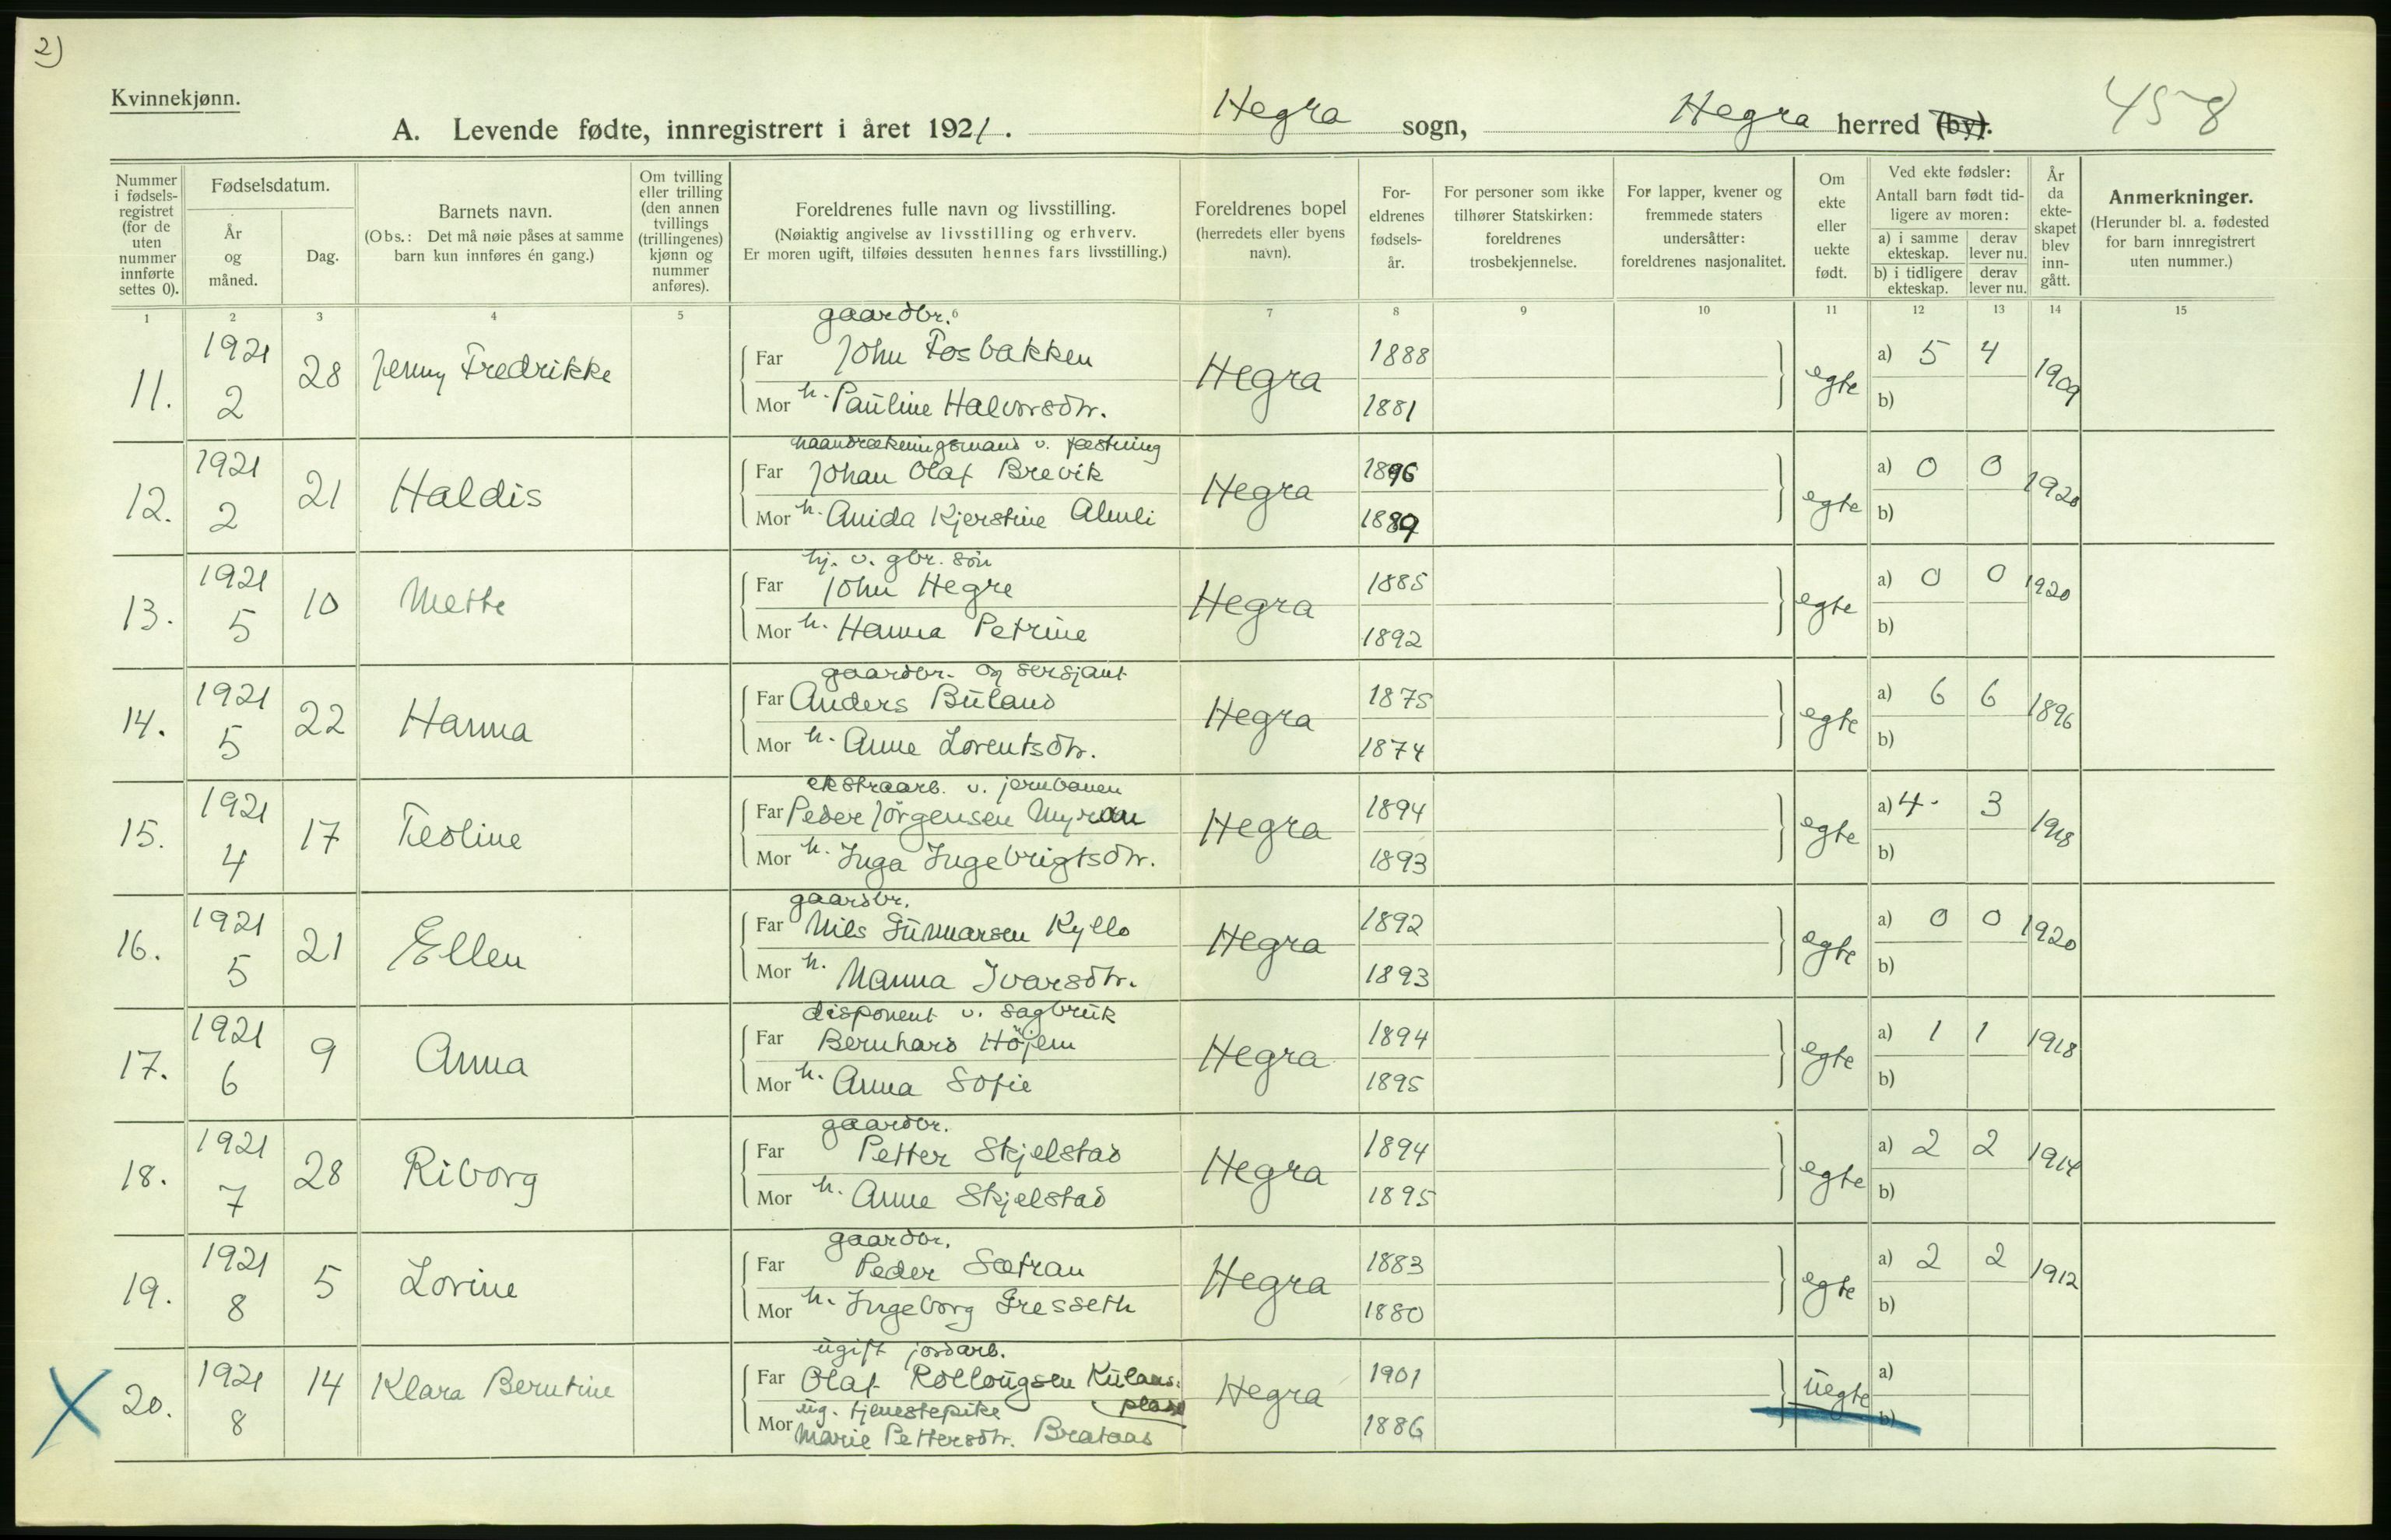 2)
Kvinnekjønn.
A. Levende fødte, innregistrert i året 1921. Hegra sogn, Hegra herred (by). 458
Nummer i fødsels-registret (for de uten nummer innførte settes 0).
Fødselsdatum.
År og måned.
Dag.
Barnets navn.
(Obs.: Det må nøie påses at samme barn kun innføres én gang.)
Om tvilling eller trilling (den annen tvillings (trillingenes) kjønn og nummer anføres).
Foreldrenes fulle navn og livsstilling.
(Nøiaktig angivelse av livsstilling og erhverv.
Er moren ugift, tilføies dessuten hennes fars livsstilling.)
Foreldrenes bopel (herredets eller byens navn).
For-eldrenes fødsels-år.
For personer som ikke tilhører Statskirken: foreldrenes trosbekjennelse.
For lapper, kvener og fremmede staters undersåtter: foreldrenes nasjonalitet.
Om ekte eller uekte født.
Ved ekte fødsler:
Antall barn født tid-ligere av moren:
a) i samme ekteskap. derav lever nu.
b) i tidligere ekteskap. derav lever nu.
År da ekte-skapet blev inn-gått.
Anmerkninger.
(Herunder bl. a. fødested for barn innregistrert uten nummer.)
1 2 3 4 5 6 7 8 9 10 11 12 13 14 15
gaardbr.
11. 1921 2 28 Jenny Fredrikke Far John Fosbakken Hegra 1888 egte a) 5 4 1909
Mor h. Pauline Halvorsdtr. 1881 b)
haandrækningsmand v. festning
12. 1921 2 21 Haldis Far Johan Olaf Brevik Hegra 1896 egte a) 0 0 1920
Mor h. Anida Kjerstine Almli 1889 b)
hj. v. gbr. søn
13. 1921 5 10 Mette Far John Hegre Hegra 1885 egte a) 0 0 1920
Mor h. Hanna Petrine 1892 b)
gaardbr. og sersjant
14. 1921 5 22 Hanna Far Anders Buland Hegra 1875 egte a) 6 6 1896
Mor h. Anne Lorentsdtr. 1874 b)
ekstraarb. v. jernbanen
15. 1921 4 17 Teoline Far Peder Jörgensen Myran Hegra 1894 egte a) 4 3 1918
Mor h. Inga Ingebrigtsdtr. 1893 b)
gaardbr.
16. 1921 5 21 Ellen Far Nils Gunnarsen Kyllo Hegra 1892 egte a) 0 0 1920
Mor h. Nanna Ivarsdtr. 1893 b)
disponent v. sagbruk
17. 1921 6 9 Anna Far Bernhard Höjem Hegra 1894 egte a) 1 1 1918
Mor h. Anna Sofie 1895 b)
gaardbr.
18. 1921 7 28 Riborg Far Petter Skjelstad Hegra 1894 egte a) 2 2 1914
Mor h. Anne Skjelstad 1895 b)
gaardbr.
19. 1921 8 5 Lorine Far Peder Sætran Hegra 1883 egte a) 2 2 1912
Mor h. Ingeborg Gresseth 1880 b)
ugift jordarb.
X 20. 1921 8 14 Klara Berntine Far Olaf Rollougsen Kulaas-plads Hegra 1901 uegte a)
ug. tjenestepike
Mor Marie Pettersdtr. Brataas 1886 b)